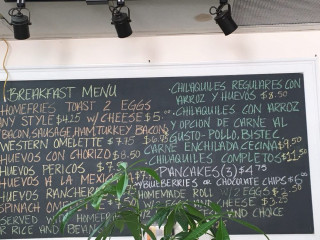 BREAKFAST MENU
HOMEFRIES TOAST 2 EGGS
ANY STYLE $4.25 W/ CHEESE $5
BACON, SAUSAGE, HAM, TURKEY BACON
WESTERN OMELETTE $7.15
HUEVOS CON CHORIZO $8.50
HUEVOS PERICOS $7
HUEVOS A LA MEXICA
HUEVOS RANCHEROS
SPINACH OME
SERVED W/ HOMEF
OR RICE AND BEANS
· CHILAQUILES REGULARES CON
ARROZ Y HUEVOS $8.50
· CHILAQUILES CON ARROZ
Y OPCION DE CARNE AL
GUSTO - POLLO, BISTEC,
CARNE ENCHILADA, CECINA $9.50
CHILAQUILES COMPLETOS $11.50
PANCAKES (3) $4.75
W/ BLUEBERRIES OR CHOCOLATE CHIPS $6
HOMEMADE RICE EGGS
W/ CHEESE $3.25
AND CHOICE